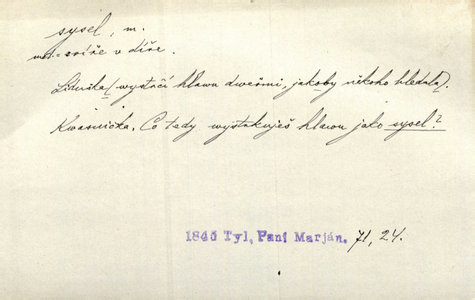 sysel, m.
zvíře v díře.
Liduška (wystrčí hlawu dweřmi, jakoby někoho hledala).
Kwasnička. Co tedy wystrkuješ hlawu jako sysel?
1845 Tyl, Paní Marján. 71, 24.